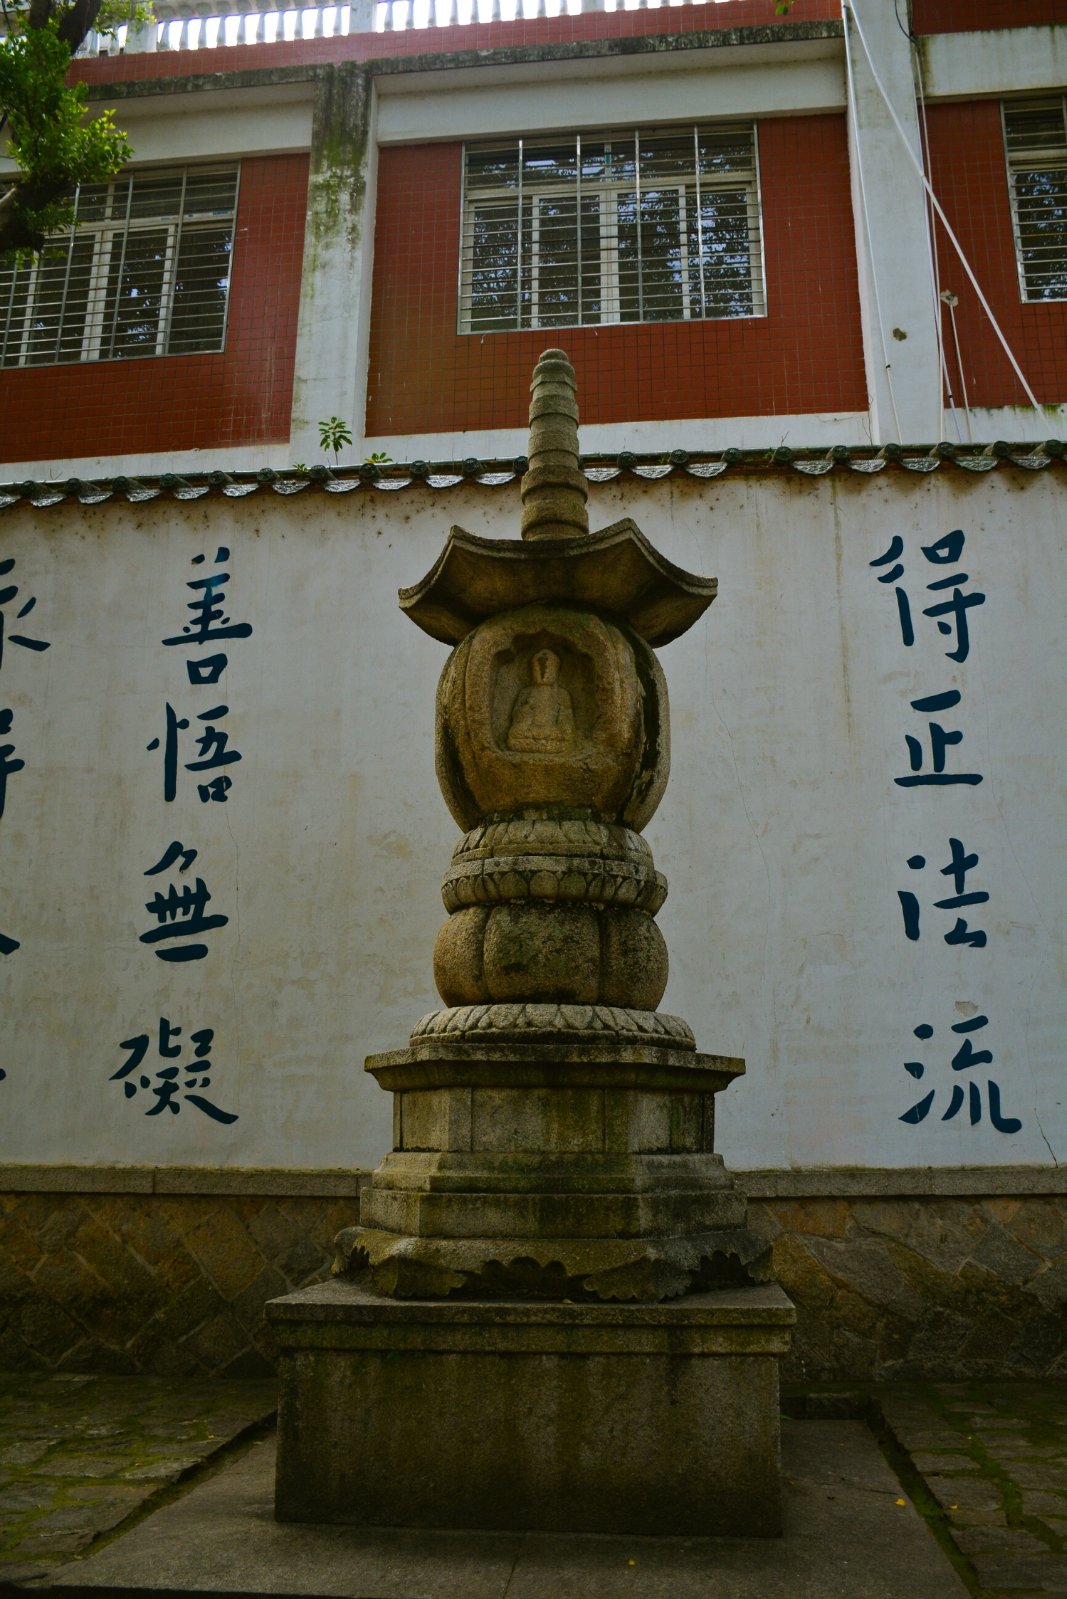 得正法流
善悟無礙